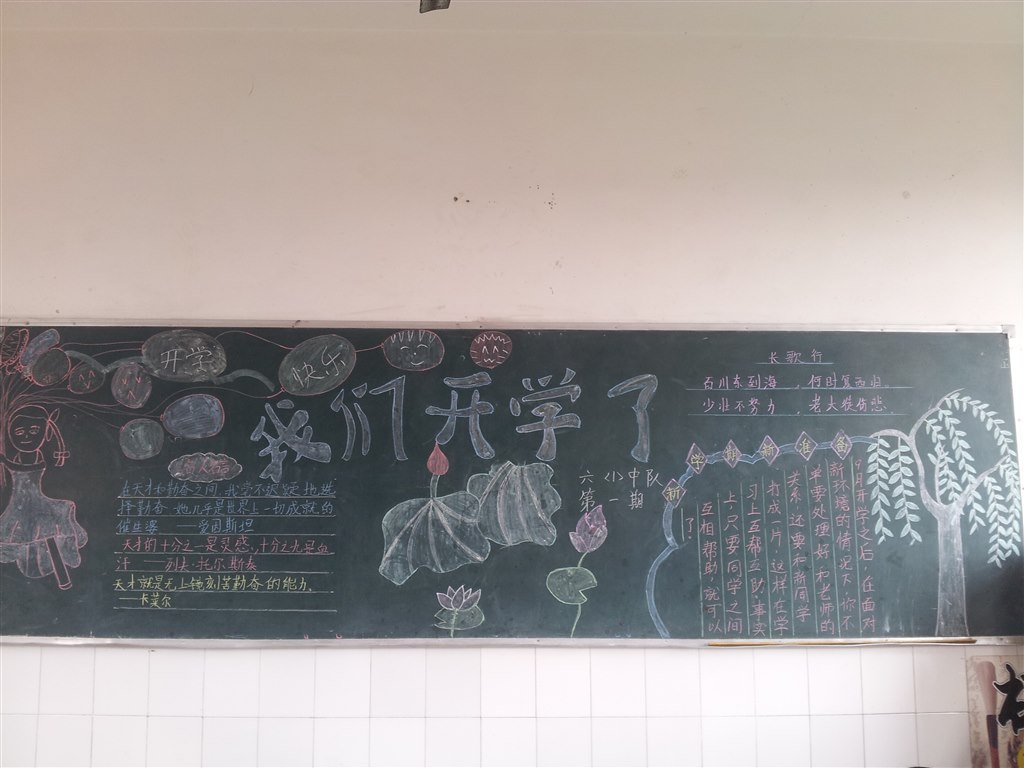 开学
快乐
我们开学了
名人名言
在天才和勤奋之间,我毫不迟疑地选
择勤奋,她几乎是世界上一切成就的
催生婆 ——爱因斯坦
天才的十分之一是灵感,十分之九是血
汗 ——列夫·托尔斯泰
天才就是无止境刻苦勤奋的能力。
卡莱尔
六(1)中队
第一期
长歌行
百川东到海,何时复西归。
少壮不努力,老大徒伤悲。
新学期新准备
9月开学之后,在面对
新环境的情况下,你不
单要处理好和老师的
关系,还要和新同学
打成一片,这样在学
习上互帮互助,事实
上,只要同学之间
互相帮助,就可以
了。